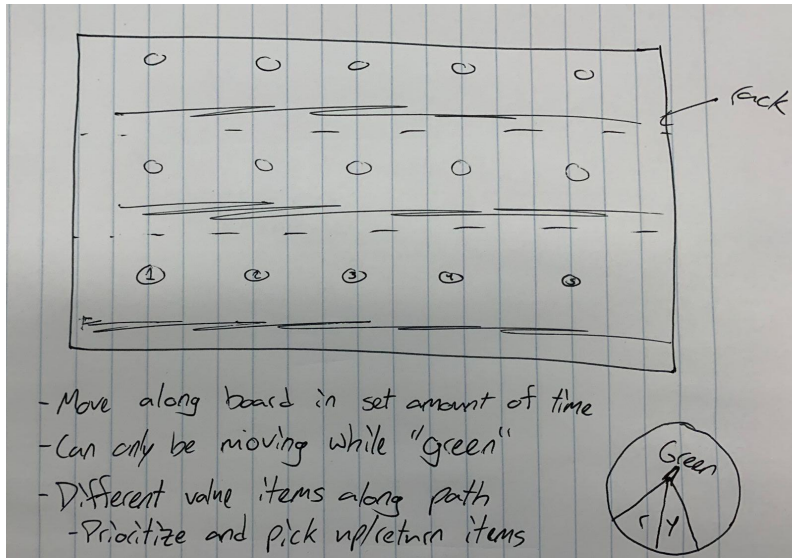 rack
1 2 3 4 5
- Move along board in set amount of time
- Can only be moving while "green"
- Different value items along path
- Prioritize and pick up/return items
Green
r Y